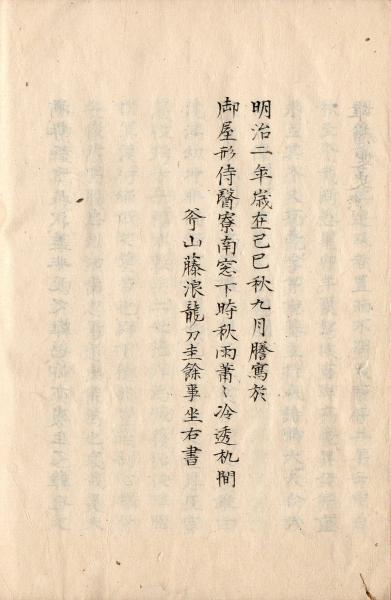 明治二年歳在己巳秋九月謄寫於
御屋形侍醫寮南窓下時秋雨蕭〻冷透机間
斧山藤浪龍刀圭餘事坐右書